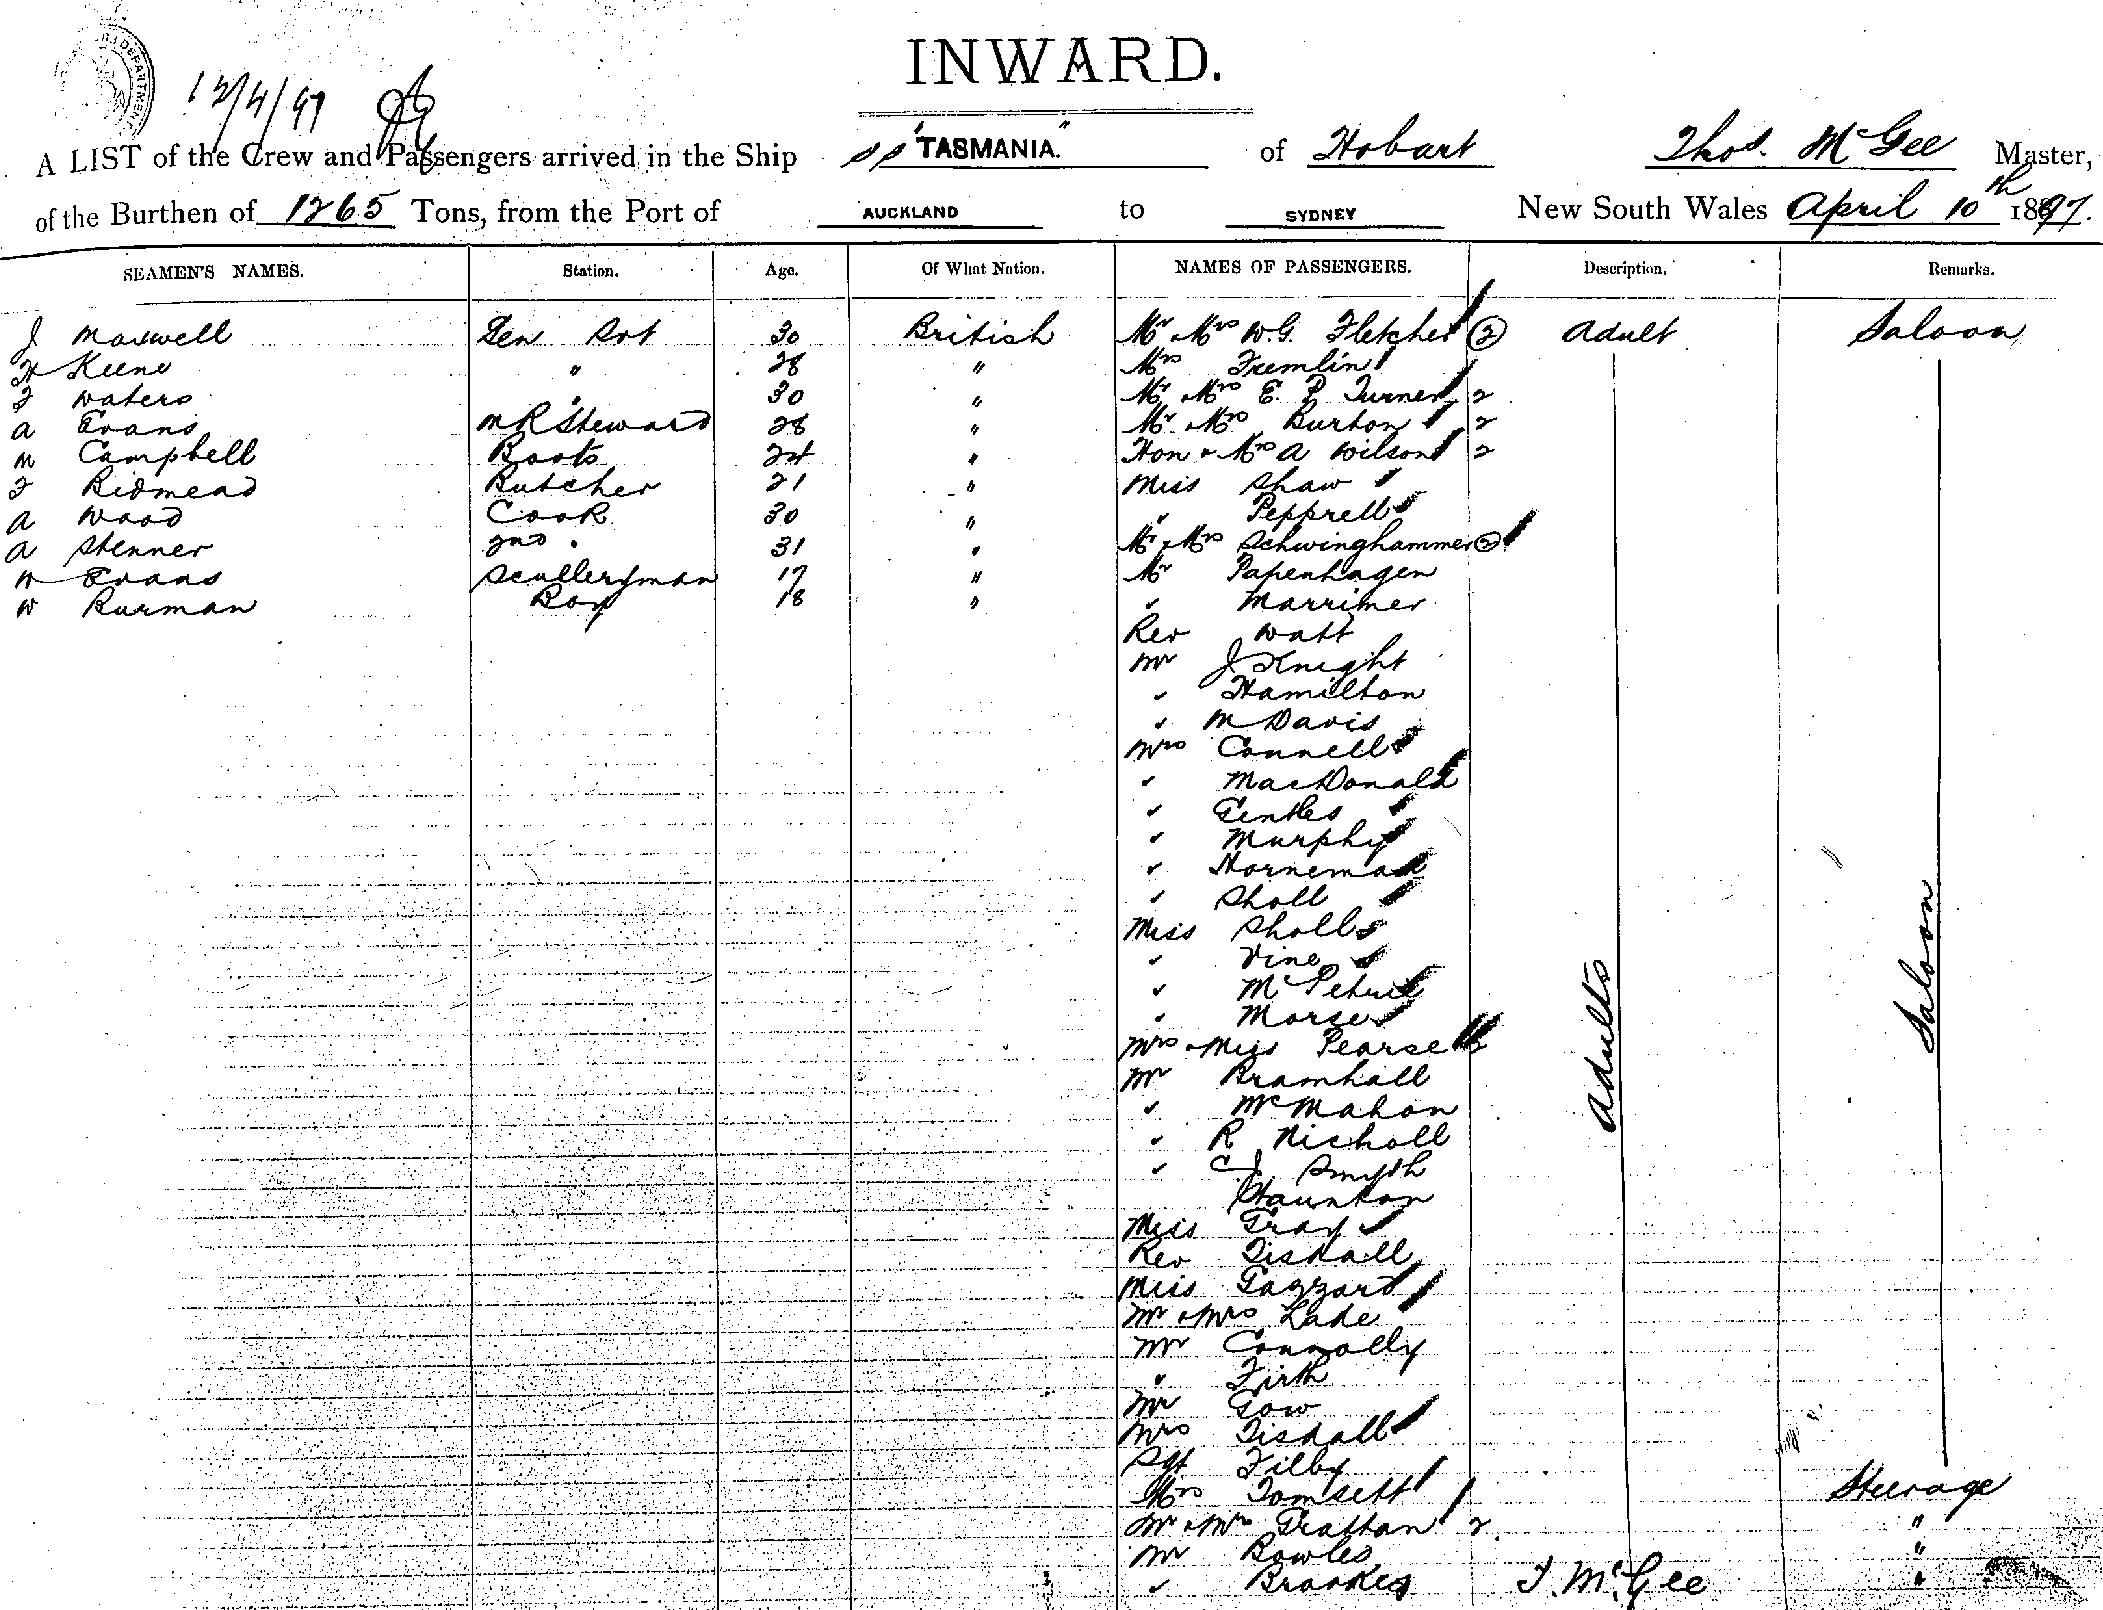 DEPARTMENT
INWARD.
12/4/97
A LIST of the Crew and Passengers arrived in the Ship ss "TASMANIA." of Hobart Thos. McGee Master,
of the Burthen of 1265 Tons, from the Port of AUCKLAND to SYDNEY New South Wales April 10th 1897.
SEAMEN'S NAMES. Station. Age. Of What Nation. NAMES OF PASSENGERS. Description. Remarks.
J Maxwell Gen Svt 30 British Mr & Mrs W.G. Fletcher 2 Adult Saloon
H Keene " 28 " Mrs Tremlin
F Waters " 30 " Mr & Mrs E. P Turner 2
A Evans M R Steward 28 " Mr & Mrs Burton 2
M Campbell Boots 24 " Hon & Mrs A Wilson 2
F Bidmead Butcher 21 " Miss Shaw
A Wood Cook 30 " " Pepprell
A Stenner 2nd " 31 " Mr & Mrs Schwinghammer 2
H Evans Sculleryman 17 " Mr Papenhagen
W Burman Boy 18 " " Marriner
Rev Watt
Mr J Knight
" Hamilton
" M Davis
Mrs Connell
" MacDonald
" Gentles
" Murphy
" Horneman
" Sholl
Miss Sholl
" Vine
" Mc
" Morse
Mrs & Miss Pearse 2
Mr Bramhall
" McMahon
" R Nicholl
" C J Smyth
Staunton
Miss Gray
Rev Tisdall
Miss Gazzard
Mr & Mrs Lake
Mr Connolly
" Firth
Mr Gow
Mrs Tisdall
Sgt Filby
Mrs Tomsett Steerage
Mr & Mrs Grattan 2 "
Mr Bowles "
" Brookes T. McGee "
Adults
Saloon